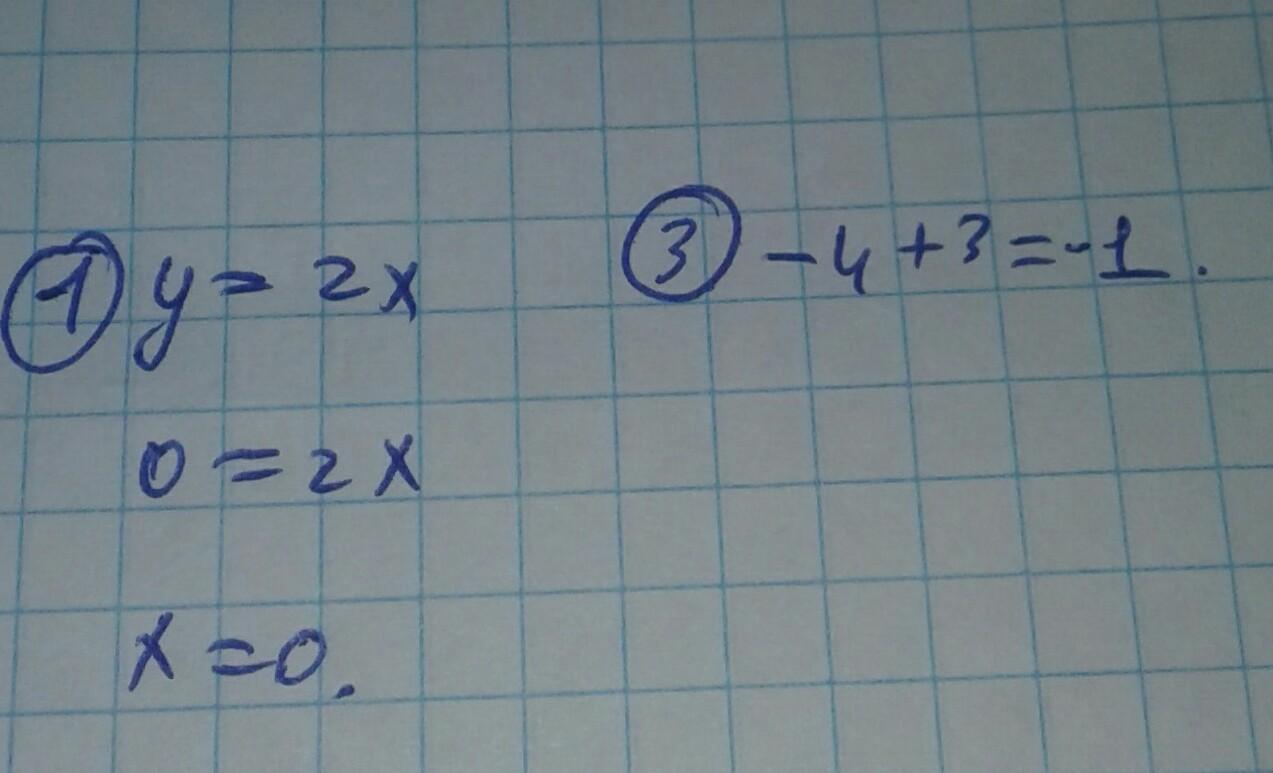 ① y = 2x
0 = 2x
x = 0.
③ -4+3=-1.